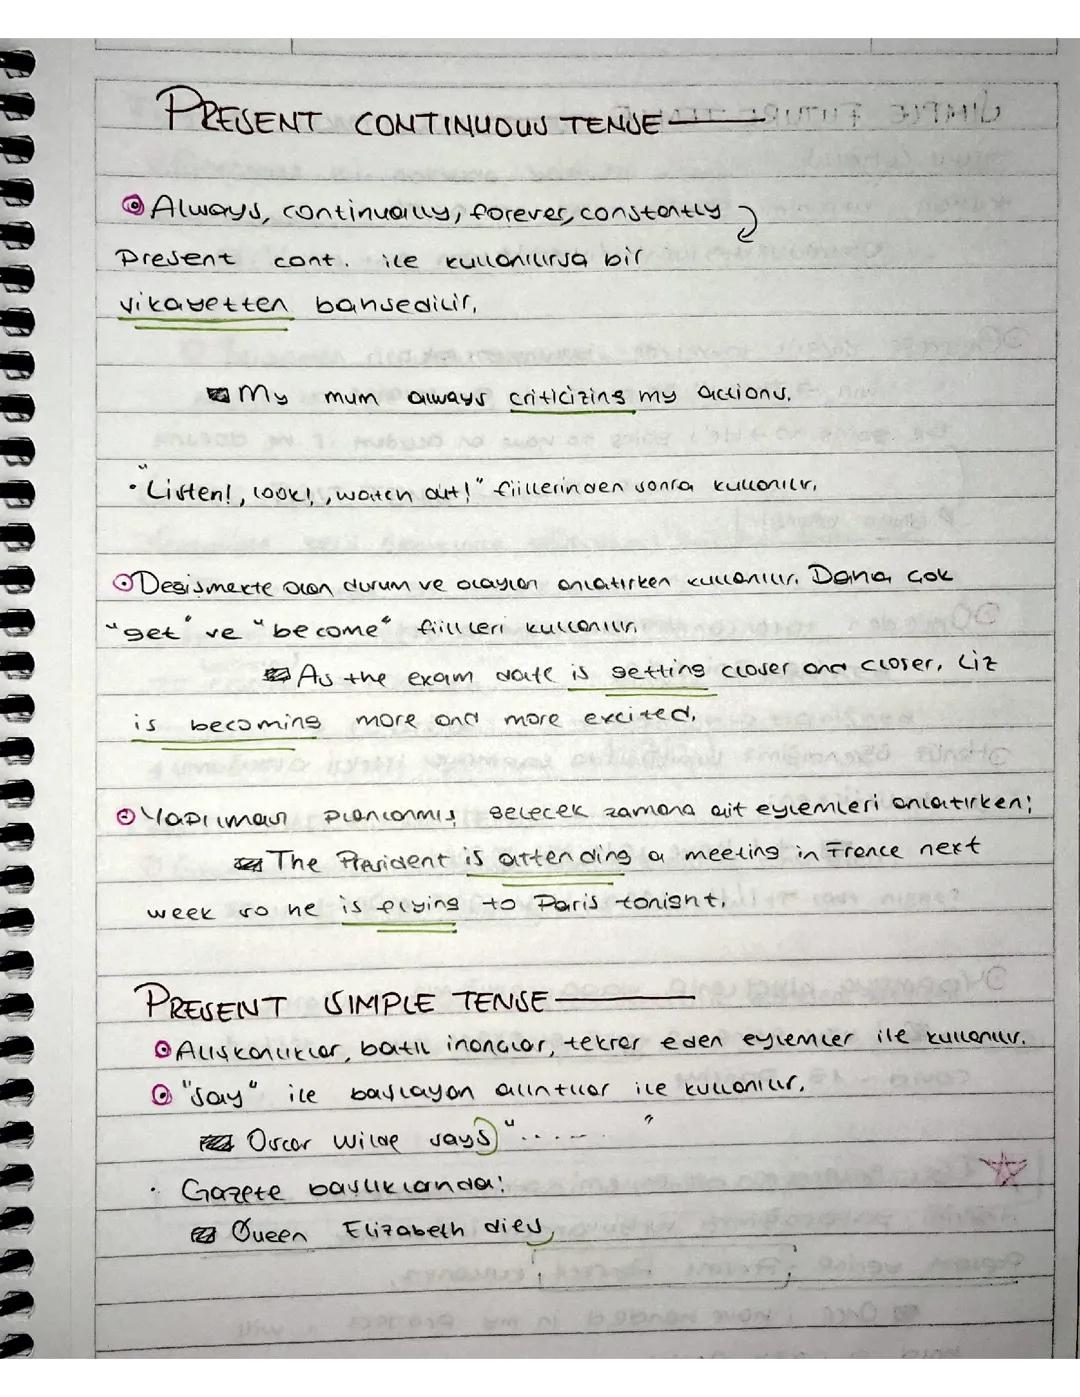 PRESENT CONTINUOUS TENSE
Always, continually, forever, constantly
Present cont. ile kullanılırsa bir
şikayetten bahsedilir.
My mum always criticizing my actions.
• "Listen!, look!, watch out!" fiillerinden sonra kullanılır.
Degismekte olan durum ve olayları anlatırken kullanılır. Daha çok
"get" ve "become" fiilleri kullanılır.
As the exam date is getting closer and closer, Liz
is becoming more and more excited.
Yapılması planlanmış gelecek zamana ait eylemleri anlatırken;
The President is attending a meeting in France next
week so he is flying to Paris tonight.
PRESENT SIMPLE TENSE
Alışkanlıklar, batıl inançlar, tekrar eden eylemler ile kullanılır.
"say" ile başlayan alıntılar ile kullanılır.
Oscar Wilde says "......"
• Gazete başlıklarında:
Queen Elizabeth dies